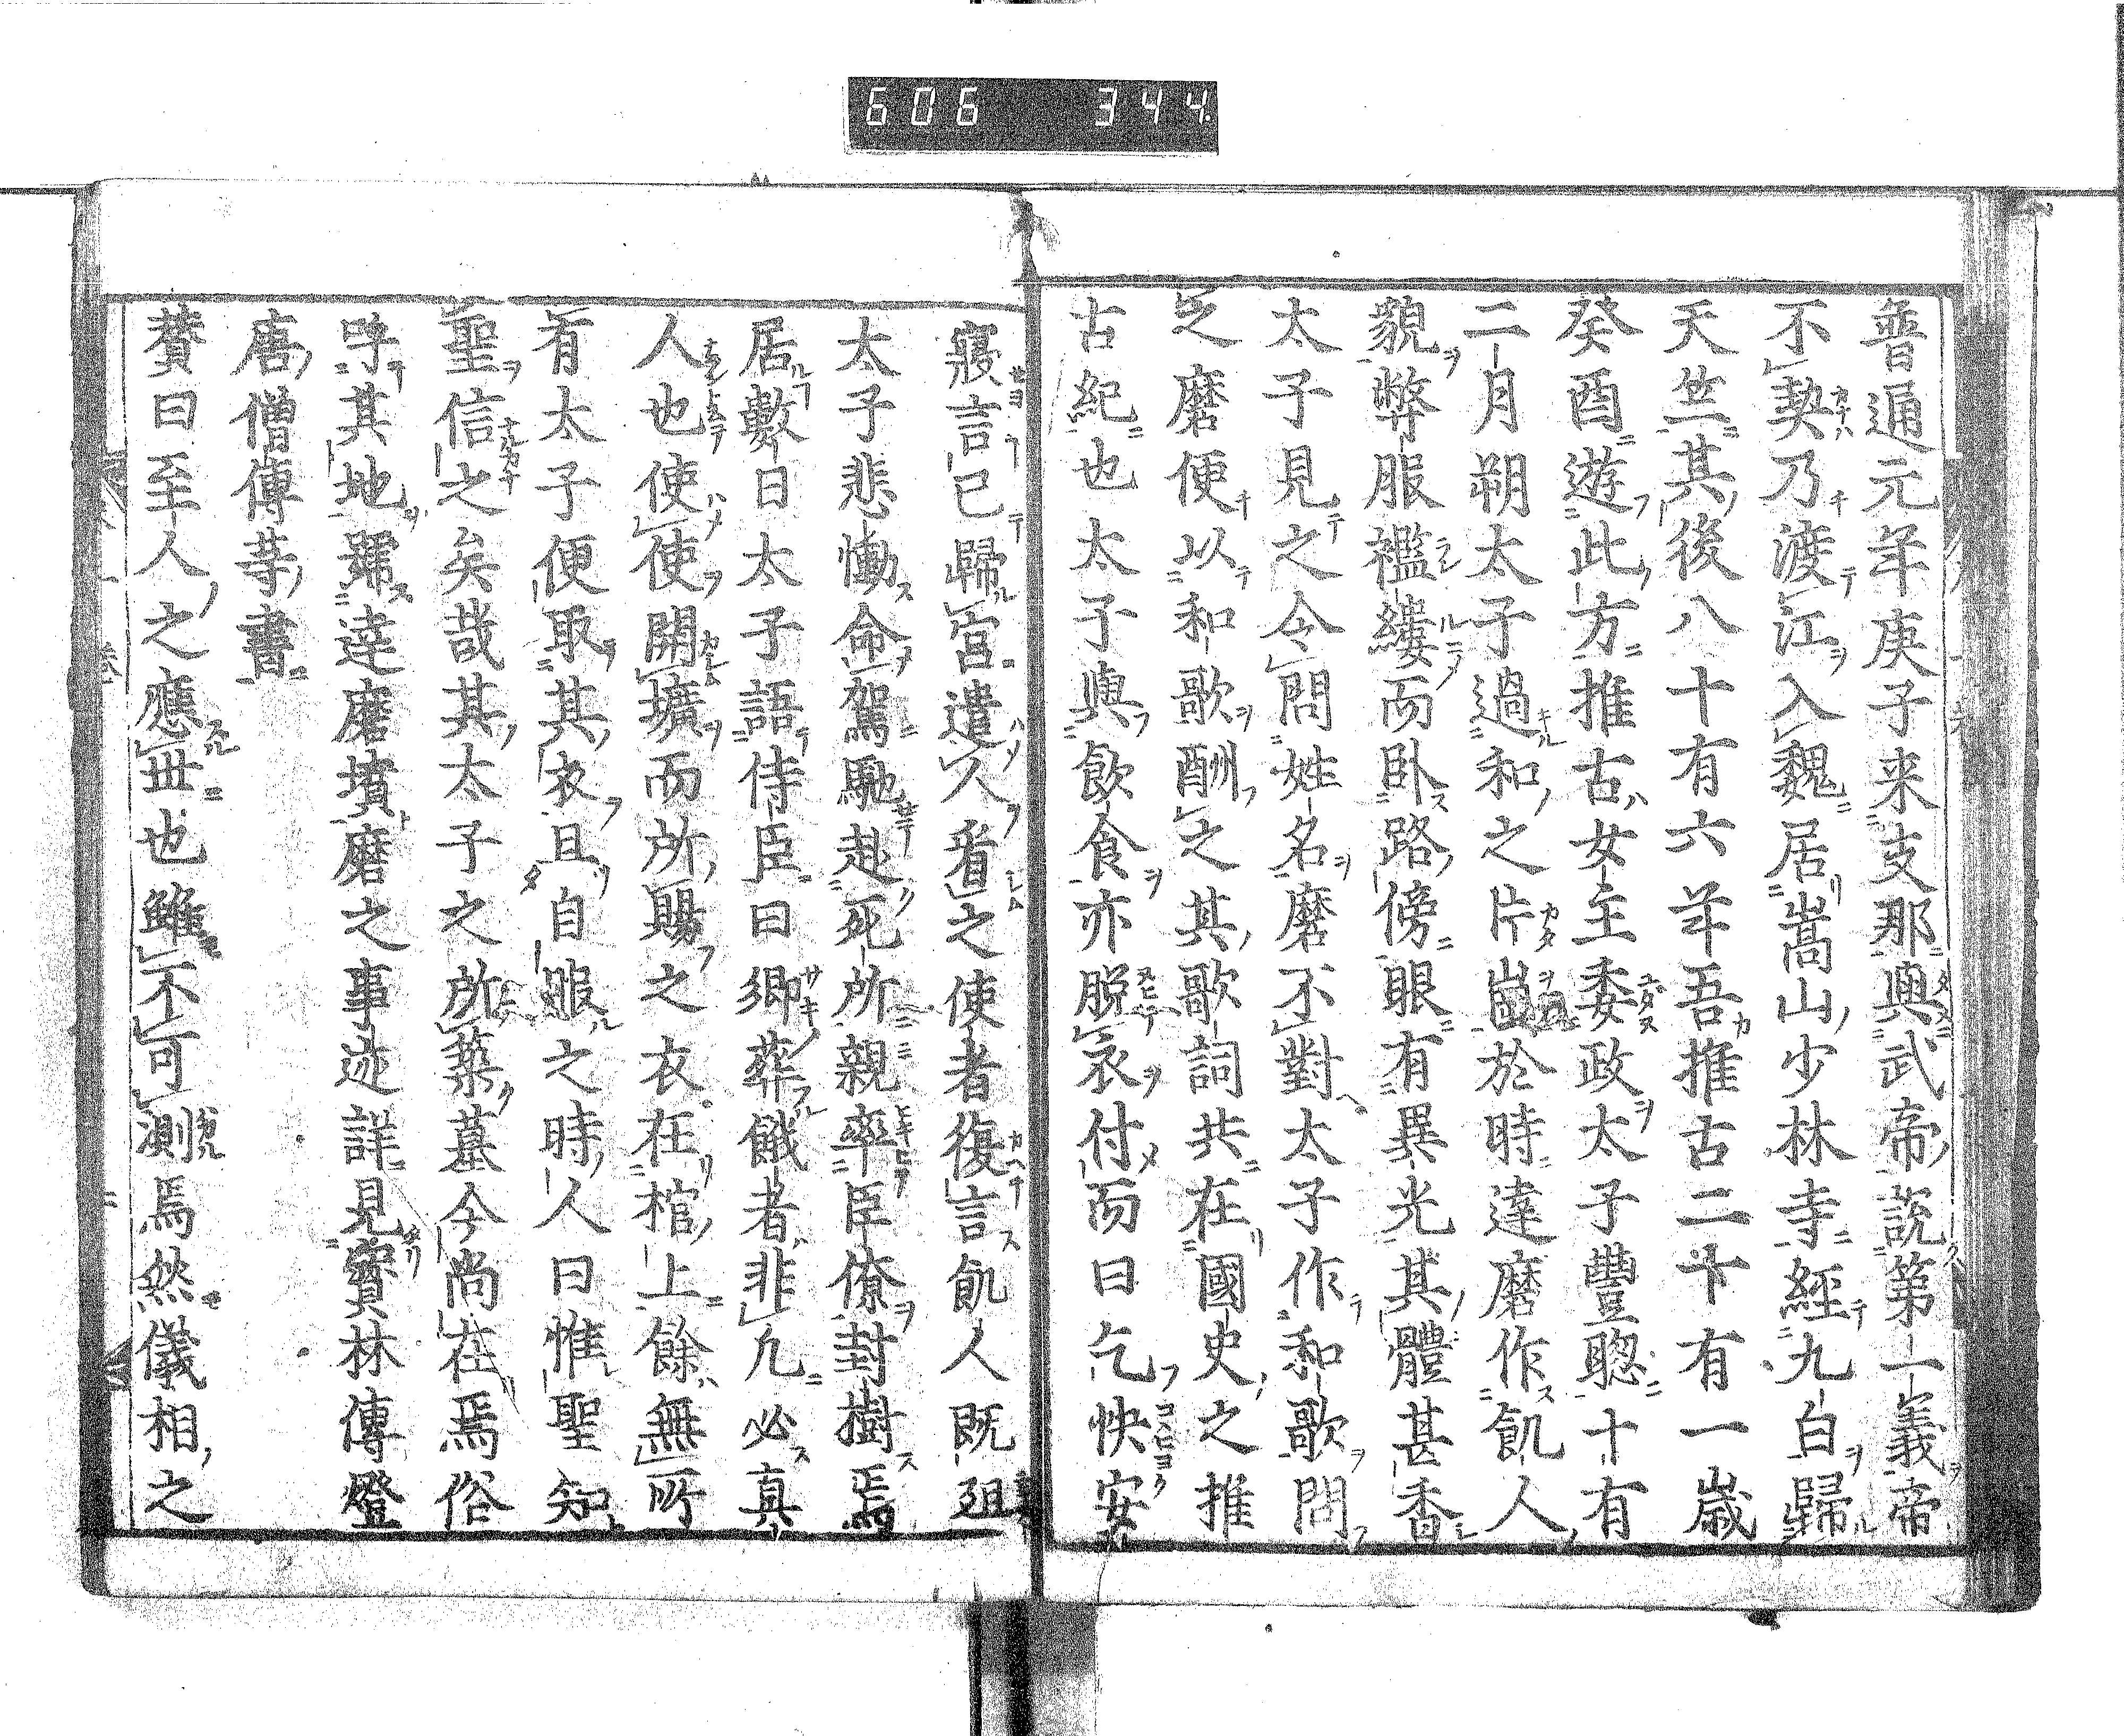 606 344
普通元年庚子来支那與武帝說第一義帝
不契乃渡江入魏居嵩山少林寺經九白歸
天竺其後八十有六年吾推古二十有一歲
癸酉遊此方推古女主委政太子豐聰十有
二月朔太子過和之片岡於時達磨作飢人
貌弊服襤縷而臥路傍眼有異光其體甚香
太子見之令問姓名磨不對太子作和歌問
之磨便以和歌酬之其歌詞共在國史之推
古紀也太子與飲食亦脫衣付而曰乞快安
寢言已歸宮遣人看之使者復言飢人既殂
太子悲慟命駕馳赴死所親率臣僚封樹焉
居數日太子語侍臣曰鄉葬餓者非凡必真
人也使使開壙而所賜之衣在棺上餘無所
有太子便取其衣且自服之時人曰惟聖知
聖信之矣哉其太子之所築墓今尚在焉俗
呼其地號達磨墳磨之事迹詳見寶林傳燈
唐僧傳等書
贊曰至人之應世也雖不可測焉然儀相之